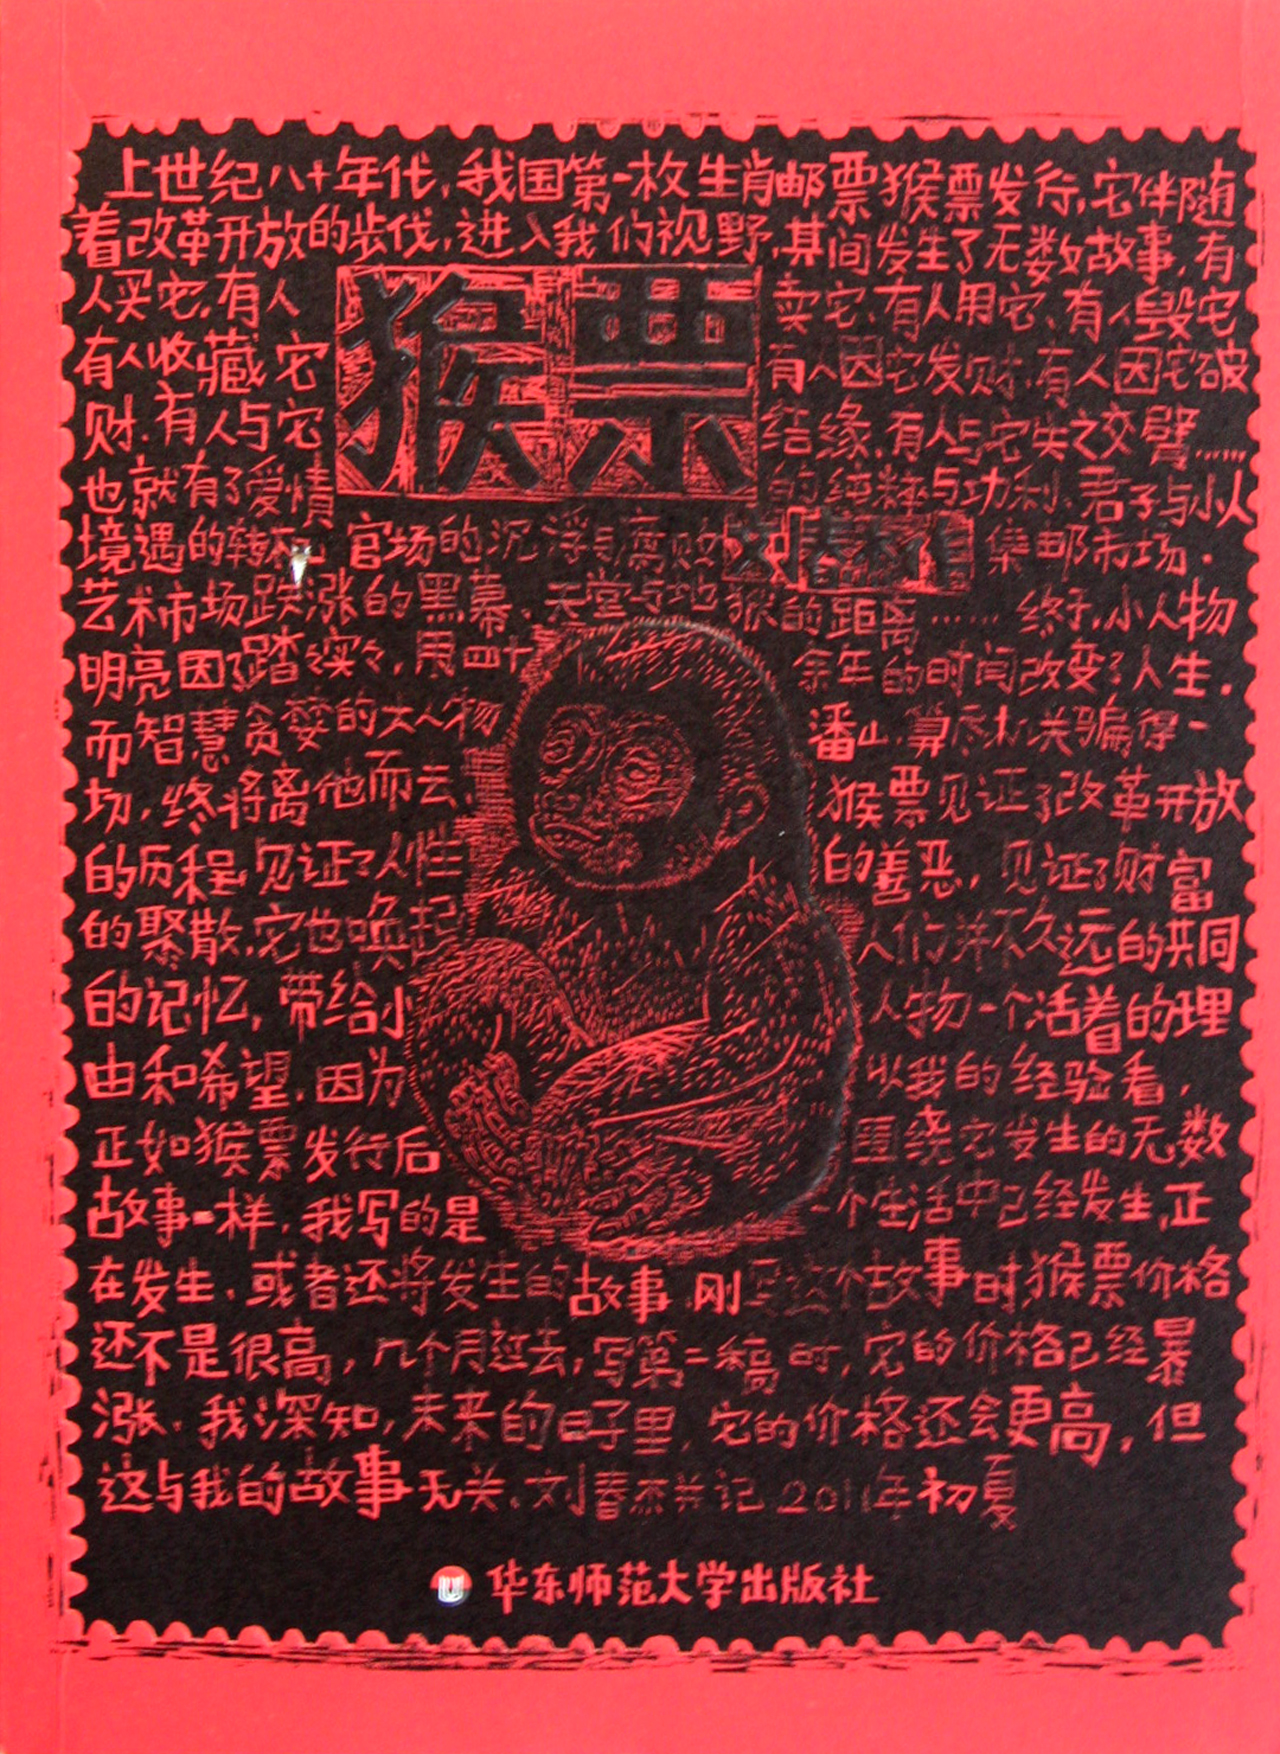 上世纪八十年代，我国第一枚生肖邮票猴票发行，它伴随
着改革开放的步伐，进入我们视野，其间发生了无数故事，有
人买它，有人卖它，有人用它，有人毁它
有人收藏它 有人因它发财，有人因它破
财，有人与它结缘，有人与它失之交臂……
也就有了爱情的纯粹与功利、君子与小人
猴票
境遇的转 官场的沉浮与腐败 集邮市场、
刘春杰 著
艺术市场跌涨的黑幕、天堂与地狱的距离……终于，小人物
明亮因了踏踏实实，用四十余年的时间改变了人生，
而智慧贪婪的大人物潘山，算尽机关骗得一
切，终将离他而去，猴票见证了改革开放
的历程，见证了人性的善恶，见证了财富
的聚散，它也唤起人们并不久远的共同
的记忆，带给小人物一个活着的理
由和希望，因为以我的经验看，
正如猴票发行后围绕它发生的无数
故事一样，我写的是一个生活中已经发生，正
在发生，或者还将发生的故事，刚写这个故事时，猴票价格
还不是很高，几个月过去，写第二稿时，它的价格已经暴
涨，我深知，未来的日子里，它的价格还会更高，但
这与我的故事无关，刘春杰并记2011年初夏
华东师范大学出版社